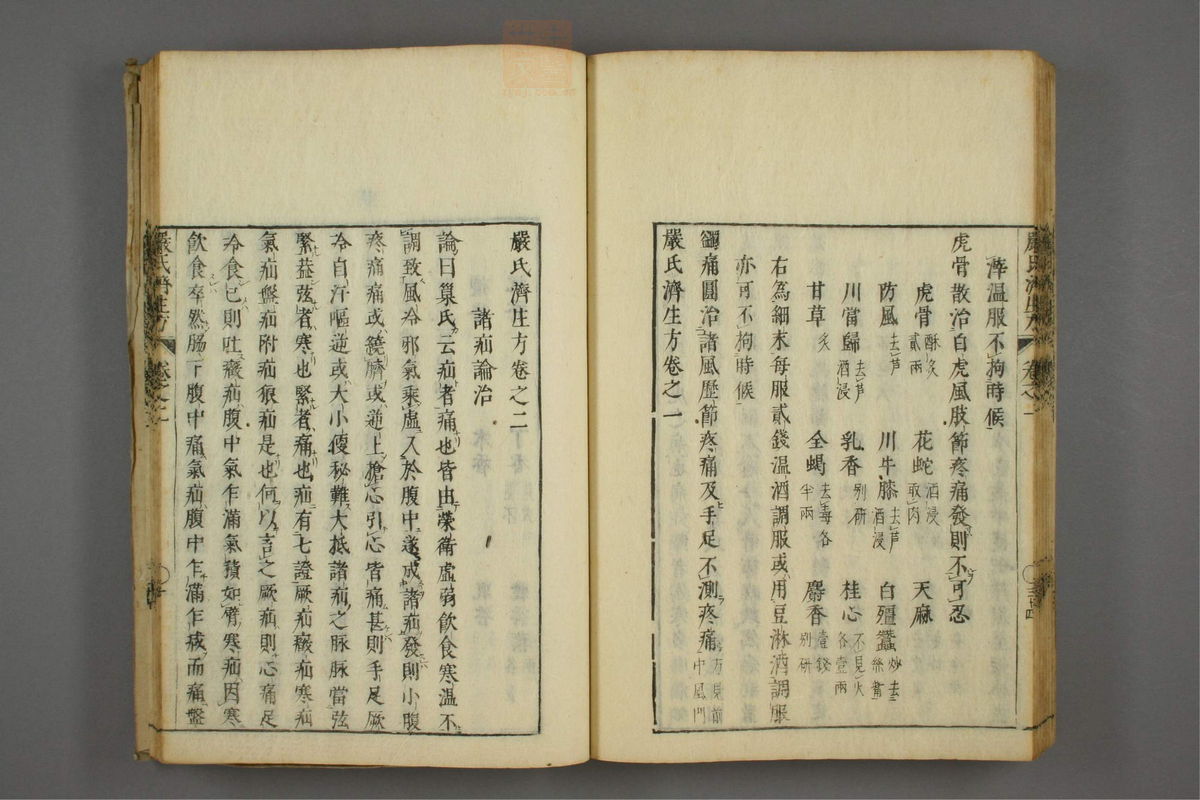 滓温服不拘時候
虎骨散治白虎風肢節疼痛發則不可忍
虎骨酥炙貳兩 花蛇酒浸取肉 天麻
防風去芦 川牛膝去芦酒浸 白殭蠶炒去絲
川當歸去芦酒浸 乳香別研 桂心不見火各壹兩
甘草炙 全蝎去毒各半兩 麝香壹錢別研
右為細末每服貳錢温酒調服或用豆淋酒調服
亦可不拘時候
痛圓治諸風歷節疼痛及手足不測疼痛方見前中風門
嚴氏濟生方卷之一
嚴氏濟生方卷之二
諸疝論治
論曰巢氏云疝者痛也皆由榮衛虛弱飲食寒温不
調致風冷邪氣乘虛入於腹中遂成諸疝發則小腹
疼痛痛或繞臍或逆上搶心引心皆痛甚則手足厥
冷自汗嘔逆或大小便秘難大抵諸疝之脉脉當弦
緊葢弦者寒也緊者痛也疝有七證厥疝癥疝寒疝
氣疝盤疝胕疝狼疝是也何以言之厥疝則心痛足
冷食已則吐癥疝腹中氣乍滿氣積如臂寒疝因寒
飲食卒然腸下腹中痛氣疝腹中乍滿乍減而痛盤
嚴氏濟生方 卷之二